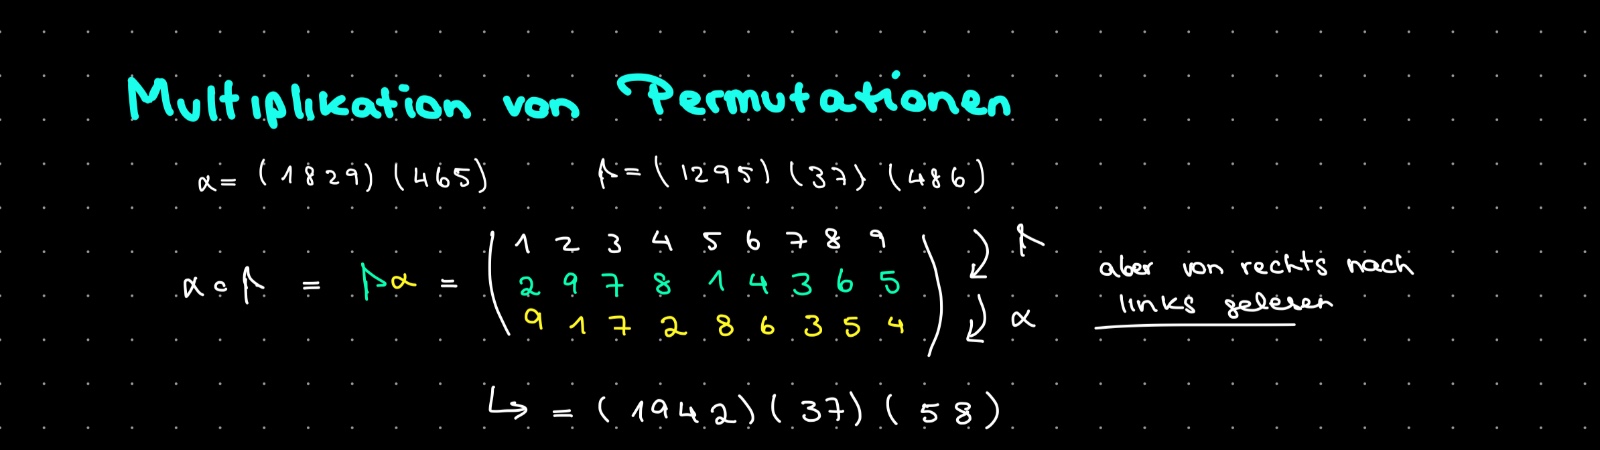 Multiplikation von Permutationen
α = (1829)(465) β = (1295)(37)(486)
α∘β = βα = ( 1 2 3 4 5 6 7 8 9 ) β
2 9 7 8 1 4 3 6 5
9 1 7 2 8 6 3 5 4 α
aber von rechts nach
links gelesen
↳ = (1942)(37)(58)